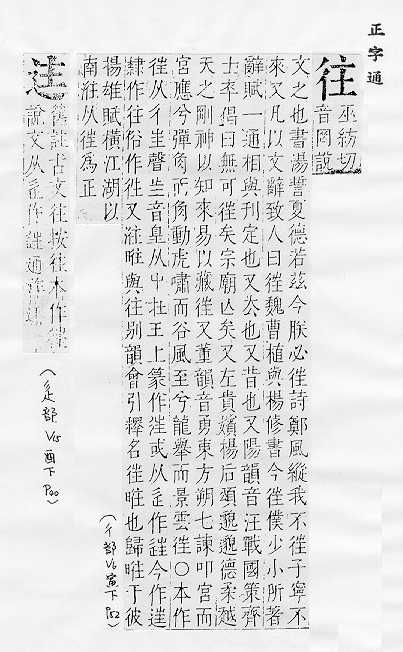 正字通
往
巫紡切
音罔說
文之也書湯誓夏德若茲今朕必徃詩鄭風縱我不徃子寧不
來又凡以文辭致人曰徃魏曹植與楊修書今徃僕少小所著
辭賦一通相與刊定也又去也又昔也又陽韻音汪戰國策齊
士卒倡曰無可徃矣宗廟亡矣又左貴嬪楊后頌邈邈德柔越
天之剛神以知來易以藏徃又董韻音勇東方朔七諫叩宮而
宮應兮彈角而角動虎嘯而谷風至兮龍舉而景雲徃〇本作
从彳㞷聲㞷音皇从屮在土上篆作或从辵作今作
隸作往俗作徃又與往别韻會引釋名徃暀也歸暀于彼
楊雄賦橫江湖以
南徃从徃為正
(彳部 V6 寅下 P52)
舊註古文往按徃本作
說文从辵作通作
(辵部 V15 酉下 P90)